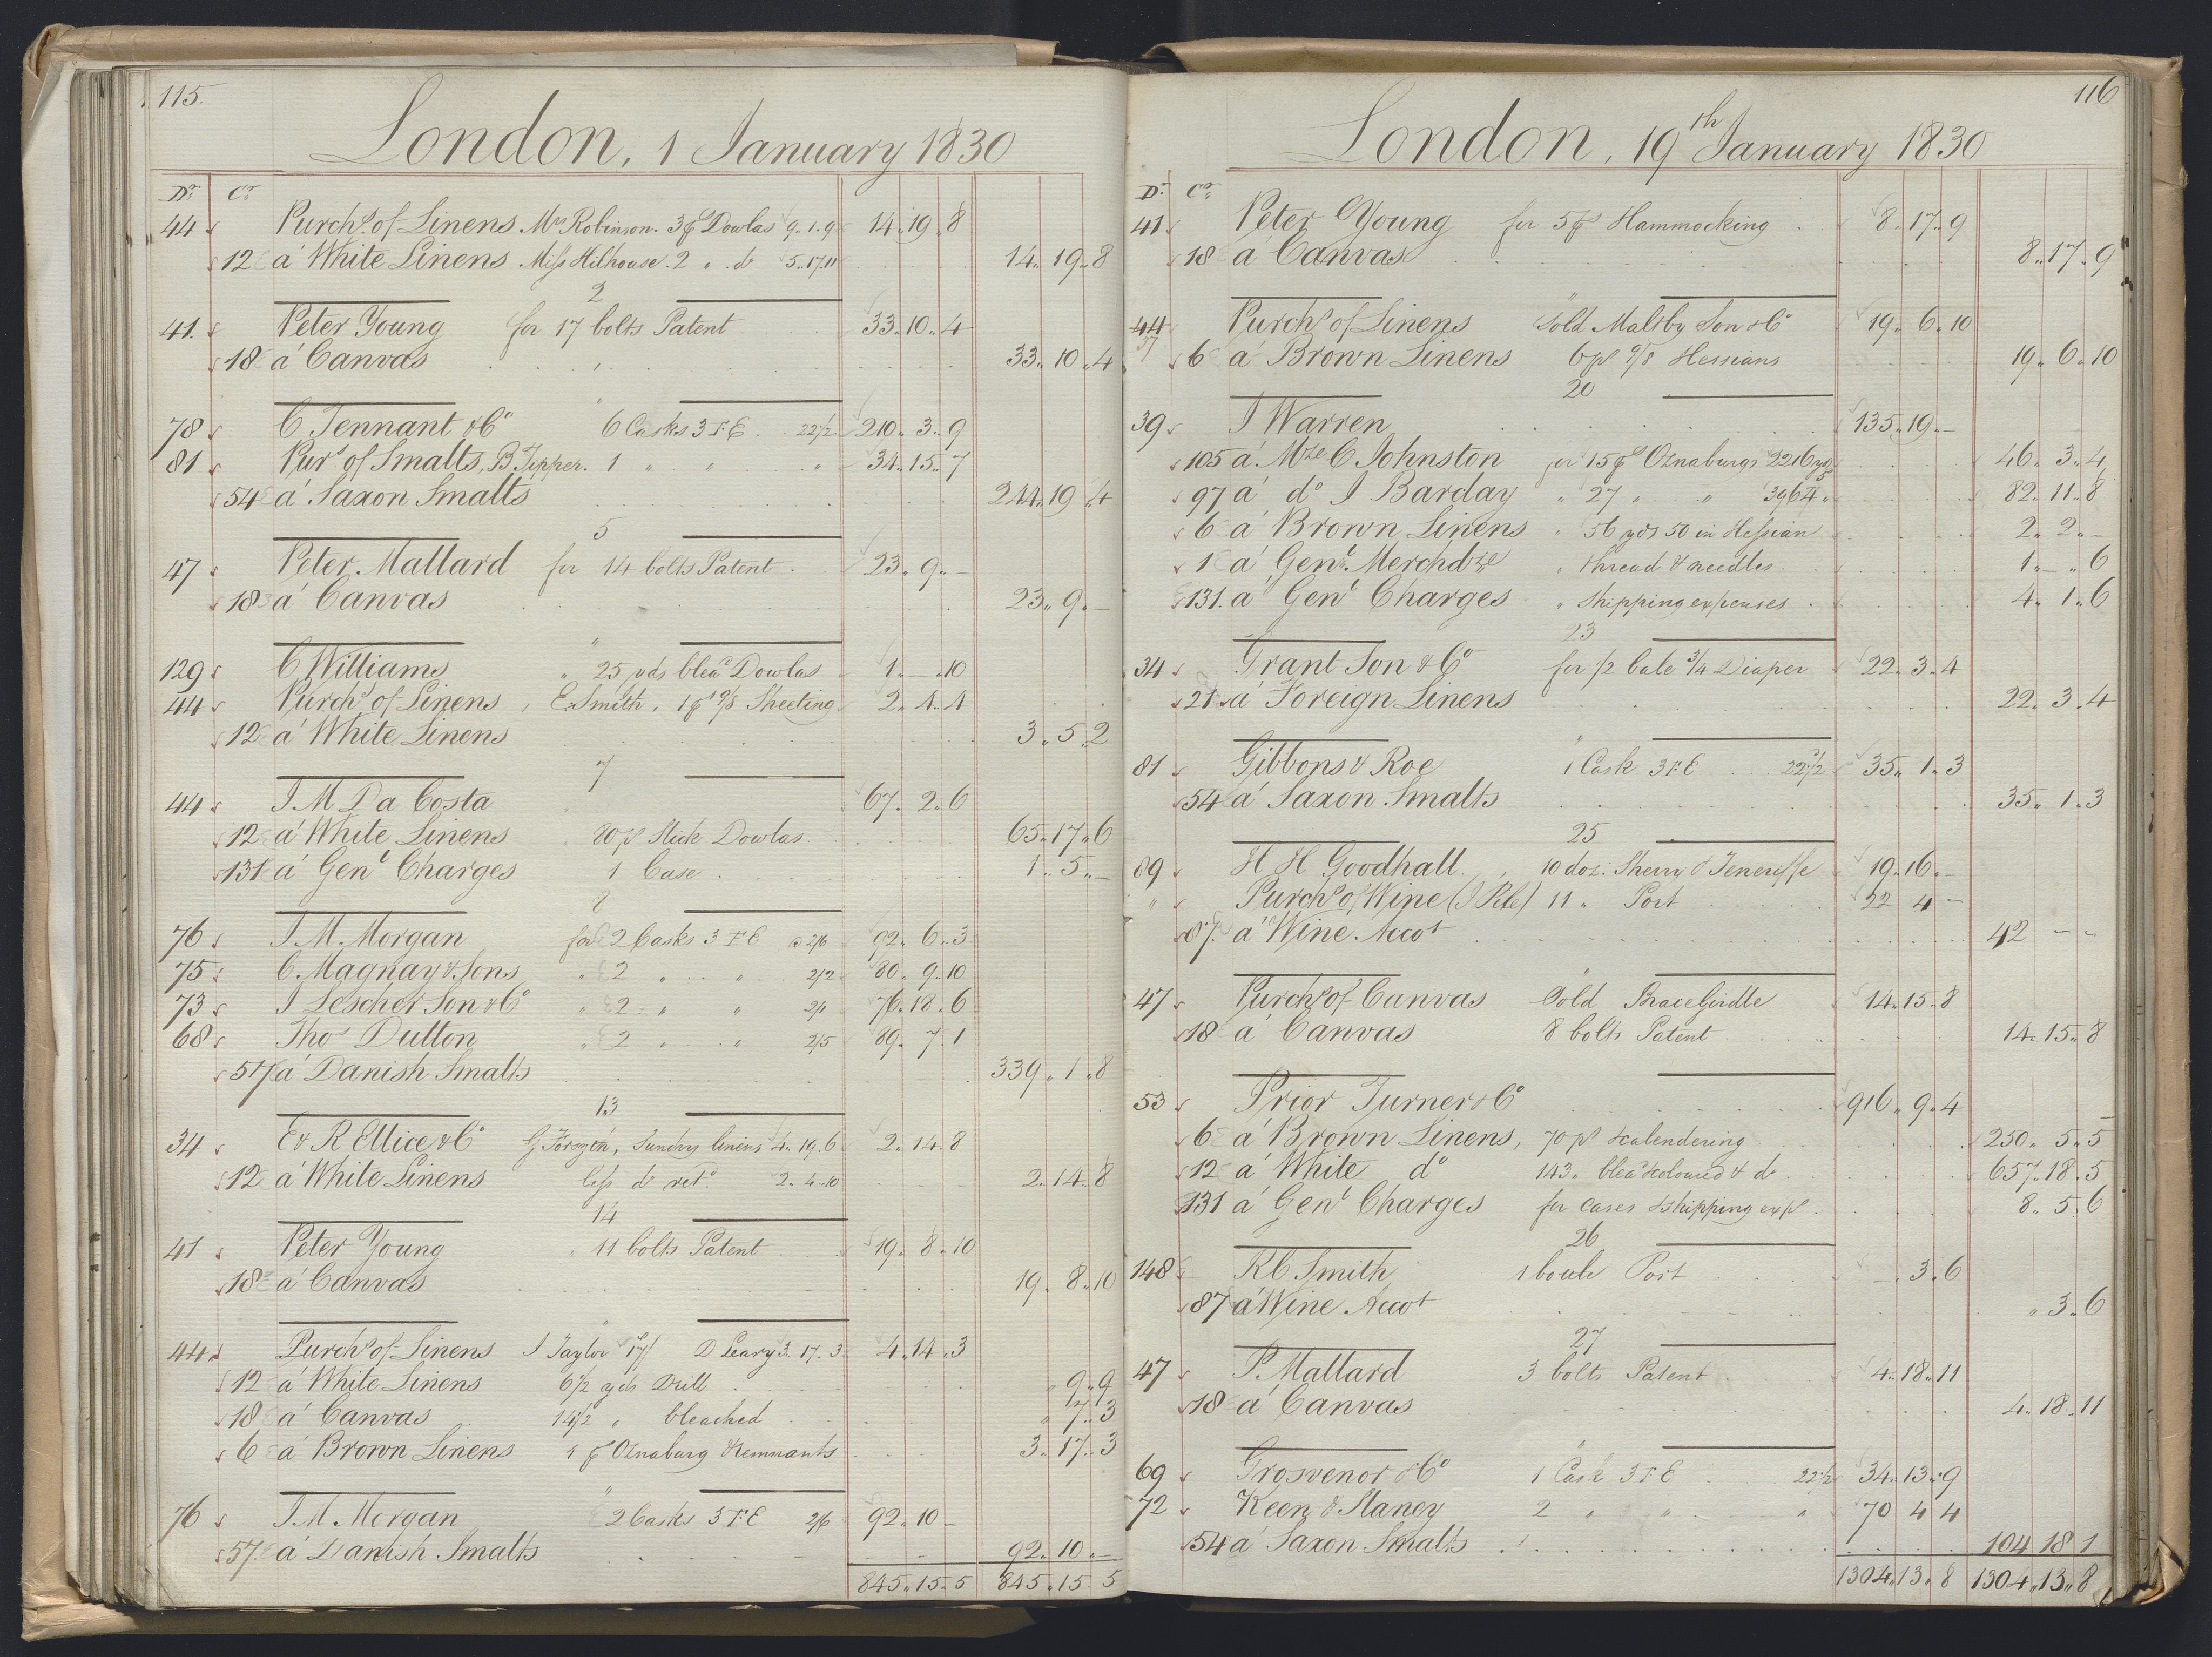 115.
London, 1 January 1830
Dr. Cr.
44 Purchs of Linens Mrs Robinson. 3 ps Dowlas 9..1..9 14..19..8
12 a White Linens Miss Hilhouse. 2 " do 5..17..11 14..19..8
2
41. Peter Young for 17 bolts Patent 33..10..4
18 a Canvas 33..10..4
"
78 C Tennant & Co 6 Casks 3 F E 22 1/2 210..3..9
81 Purs of Smalts, B Tipper. 1 " " " 34..15..7
54 a Saxon Smalts 244..19..4
5
47 Peter Mallard for 14 bolts Patent 23..9..–
18 a Canvas 23..9..–
"
129 C Williams " 25 yds blead Dowlas 1..–..10
44 Purchs of Linens, E. Smith, 1 ps 9/8 Sheeting 2..4..4
12 a White Linens 3..5..2
7
44 J. M Da Costa 67..2..6
12 a White Linens 20 ps Slick Dowlas 65..17..6
131 a Genl Charges 1 Case 1..5..–
8
76 J. M. Morgan for 2 Casks 3 F E @ 2/6 92..6..3
75 C. Magnay & Sons " 2 " " 2/2 80..9..10
73 J Lescher Son & Co " 2 " " 2/1 76..18..6
68 Thos Dutton " 2 " " 2/5 89..7..1
57 a Danish Smalts 339..1..8
13
34 E & R Ellice & Co G Forsyth, Sundry linens 4..19..6 2..14..8
12 a White Linens less do retd. 2..4..10 2..14..8
14
41 Peter Young " 11 bolts Patent 19..8..10
18 a Canvas 19..8..10
"
44 Purchs of Linens J Taylor 17/ D Leary 3..17..3 4..14..3
12 a White Linens 6 1/2 yds Drill "..9..9
18 a Canvas 14 1/2 " bleached "..7..3
6 a Brown Linens 1 ps Oznaburg & remnants 3..17..3
"
76 J. M. Morgan 2 Casks 3 F E 2/6 92..10..–
57 a Danish Smalts 92..10..–
845..15..5 845..15..5
116
London, 19th January 1830
Dr. Cr.
41 Peter Young for 5 ps Hammocking 8..17..9
18 a Canvas 8..17..9
"
44 Purchs of Linens Sold Maltby Son & Co 19..6..10
37 6 a Brown Linens 6 ps 9/8 Hessians 19..6..10
20
39 J Warren 135..19..–
105 a Mze C Johnston for 15 ps Oznaburgs 2216 yds 46..3..4
97 a do J Barclay " 27 " " 3964 " 82..11..8
6 a Brown Linens " 56 yds 50 in Hessian 2..2..–
1 a Genl. Merchdze " thread & needles 1..–..6
131. a Genl Charges " Shipping expenses 4..1..6
23
34 Grant Son & Co for 1/2 bale 3/4 Diaper 22..3..4
21 a Foreign Linens 22..3..4
"
81 Gibbons & Roe 1 Cask 3 F E 22 1/2 35..1..3
54 a Saxon Smalts 35..1..3
25
89 H H Goodhall, 10 doz. Sherry & Teneriffe 19..16..–
" Purchs of Wine (J Pile) 11 " Port 22 4 –
87. a Wine Accot 42 – –
"
47 Purchs of Canvas Sold Bracegirdle 14..15..8
18 a Canvas 8 bolts Patent 14..15..8
53 Prior Turner & Co 916..9..4
6 a Brown Linens, 70 ps & calendering 250..5..5
12 a White do 143 " blead & coloured & do 657..18..5
131 a Genl Charges for cases & shipping exps 8..5..6
26
148 R C Smith 1 bottle Port –..3..6
87 a Wine Accot "..3..6
27
47 P. Mallard 3 bolts Patent 4..18..11
18 a Canvas 4..18..11
"
69 Grosvenor & Co 1 Cask 3 F E 22 1/2 34..13..9
72 Keen & Slaney 2 " " " 70 4 4
54 a Saxon Smalts 104 18 1
1304..13..8 1304..13..8